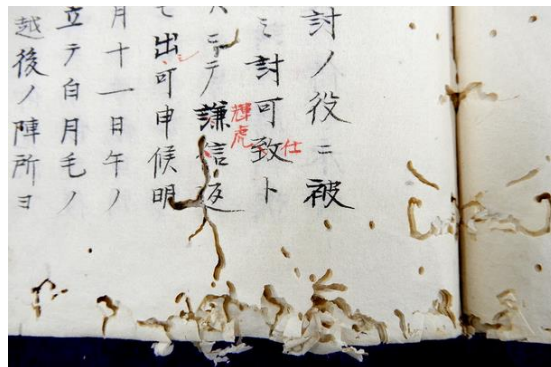 討ノ役ニ被
ミ討可致ト
仕
ニテ謙信返
輝虎
テ出可申候明
月十一日午ノ
立テ白月毛ノ
越後ノ陣所ヨ